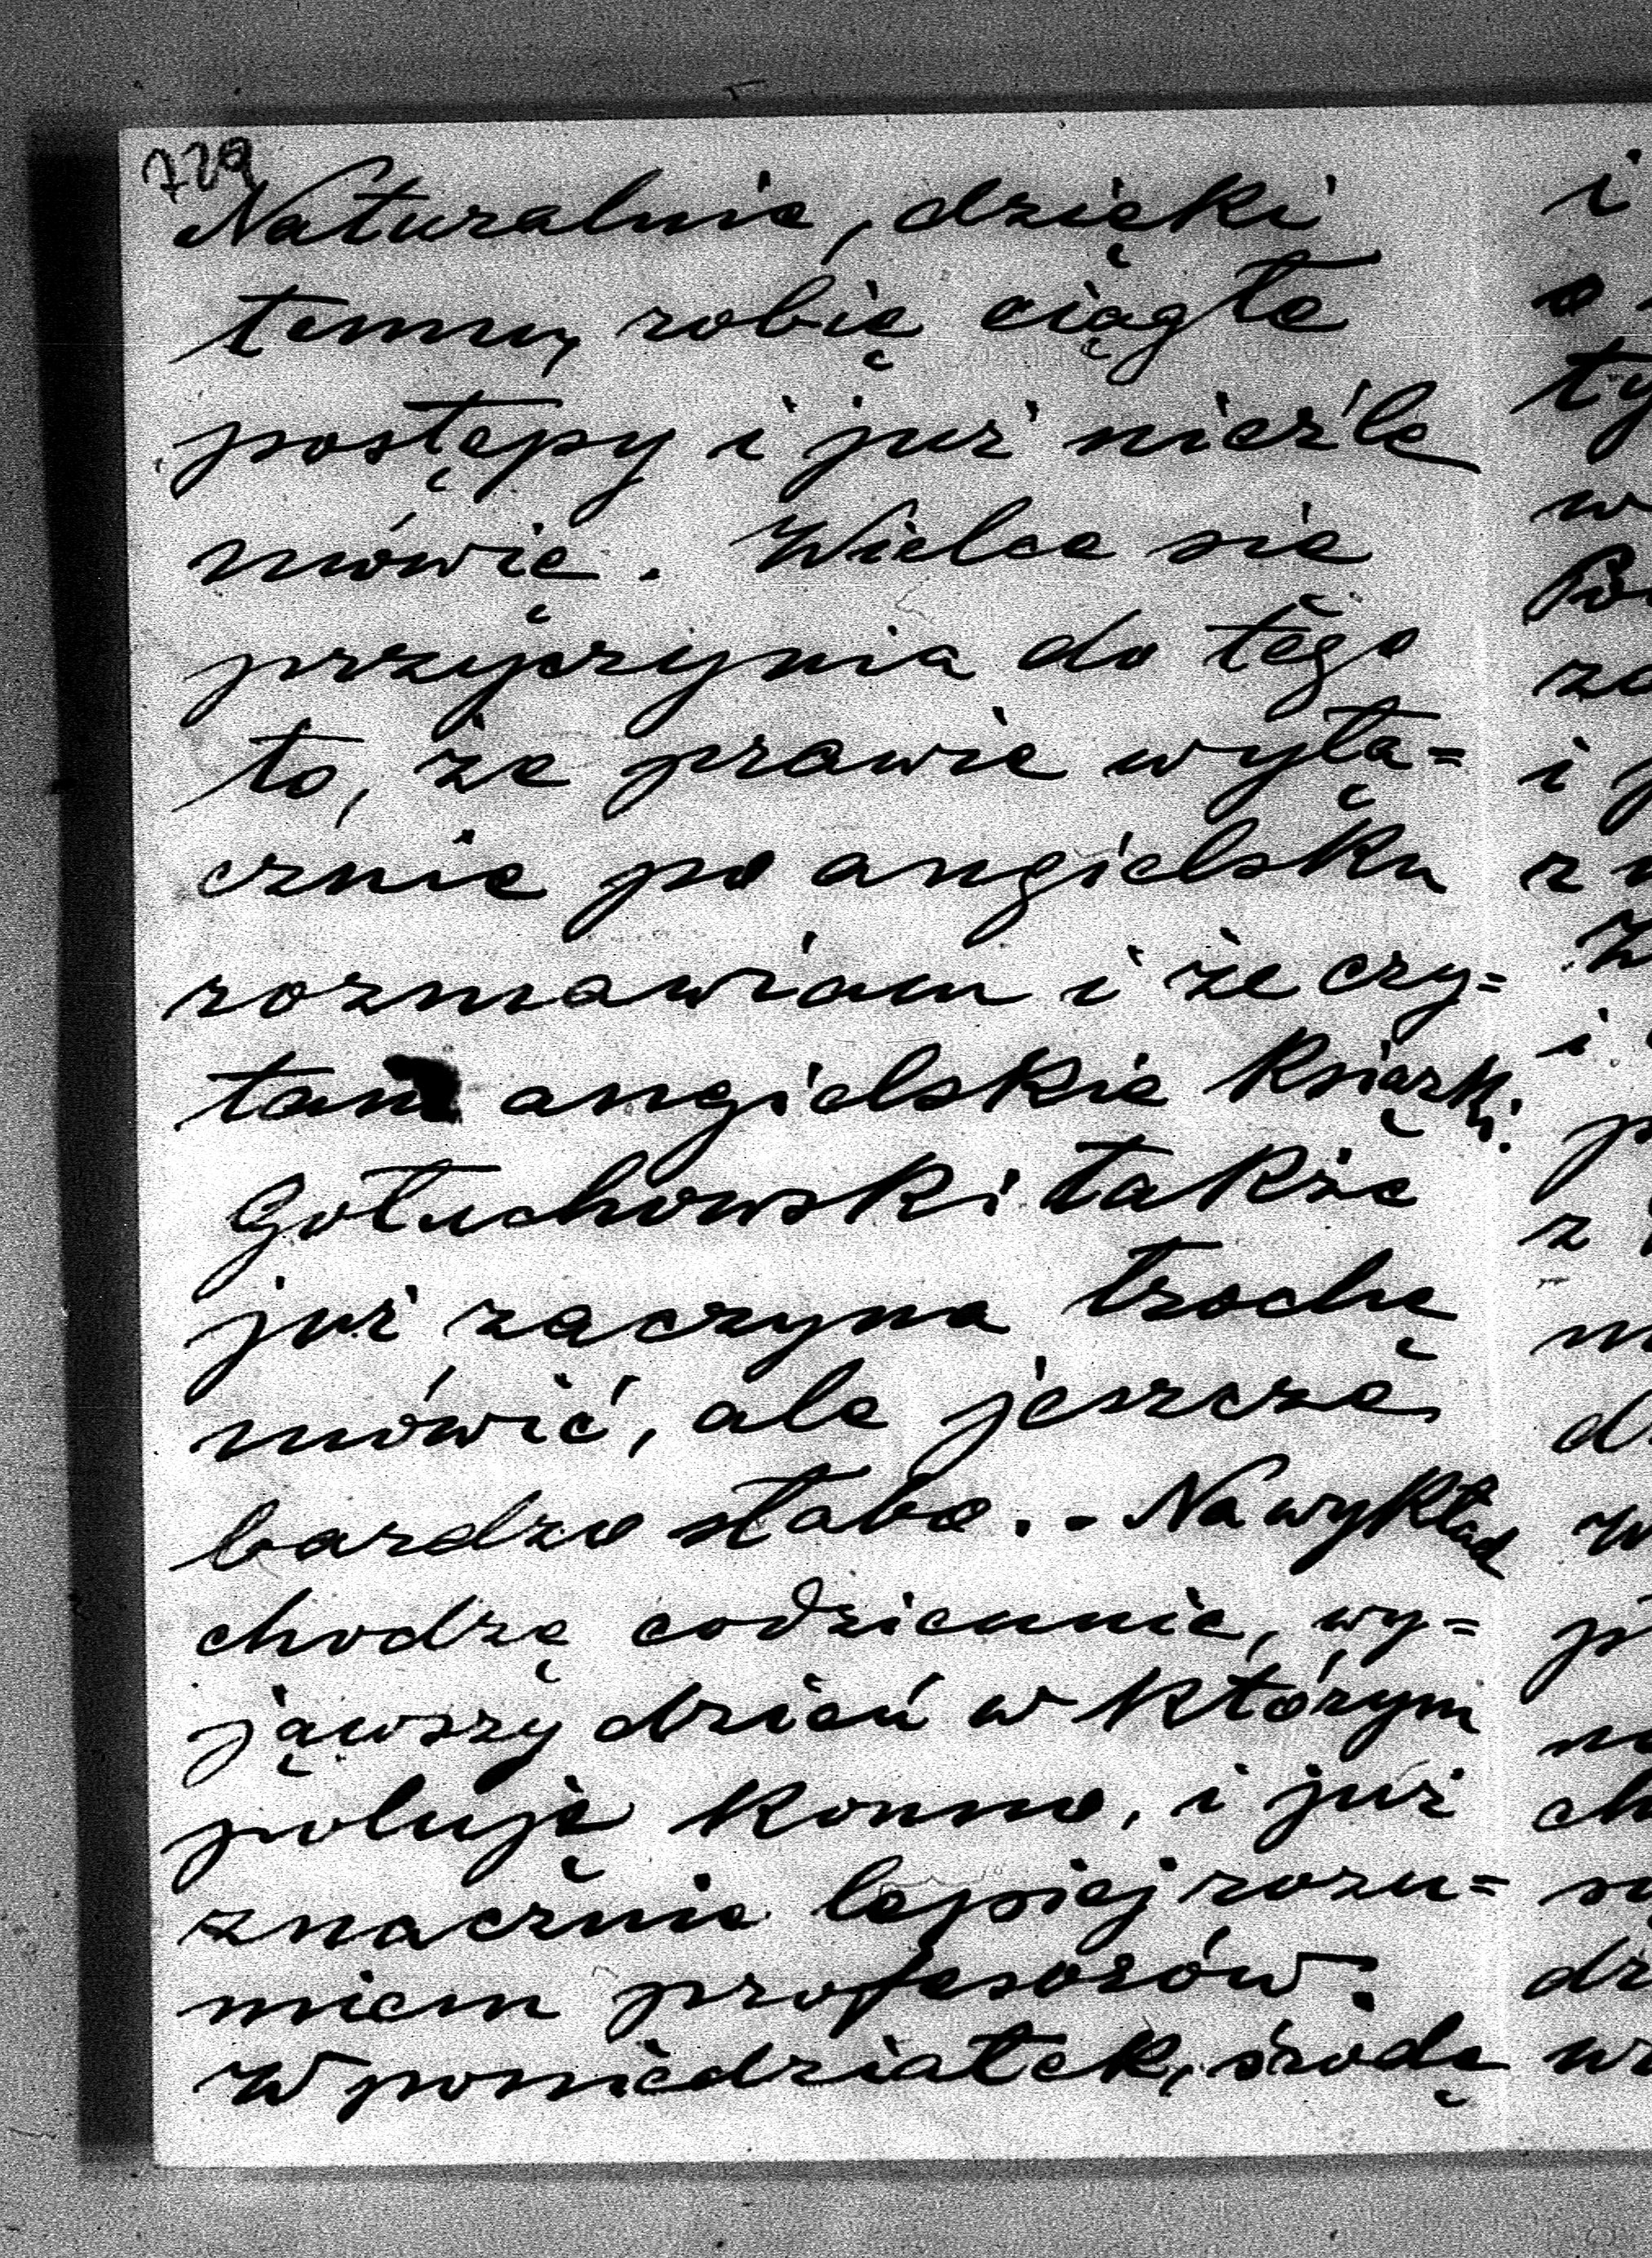 729
Naturalnie, dzięki
temu, robię ciągłe
postępy i już nieźle
mówię. Wielce się
przyczynia do tego
to, że prawie wyłą=
cznie po angielsku
rozmawiam i że czy=
tam angielskie książki.
Gołuchowski także
już zaczyna trochę
mówić, ale jeszcze
bardzo słabo.. Na wykład
chodzę codziennie, wy=
jąwszy dzień w którym
poluję konno, i już
znacznie lepiej rozu=
miem profesorów.
W poniedziałek, środę